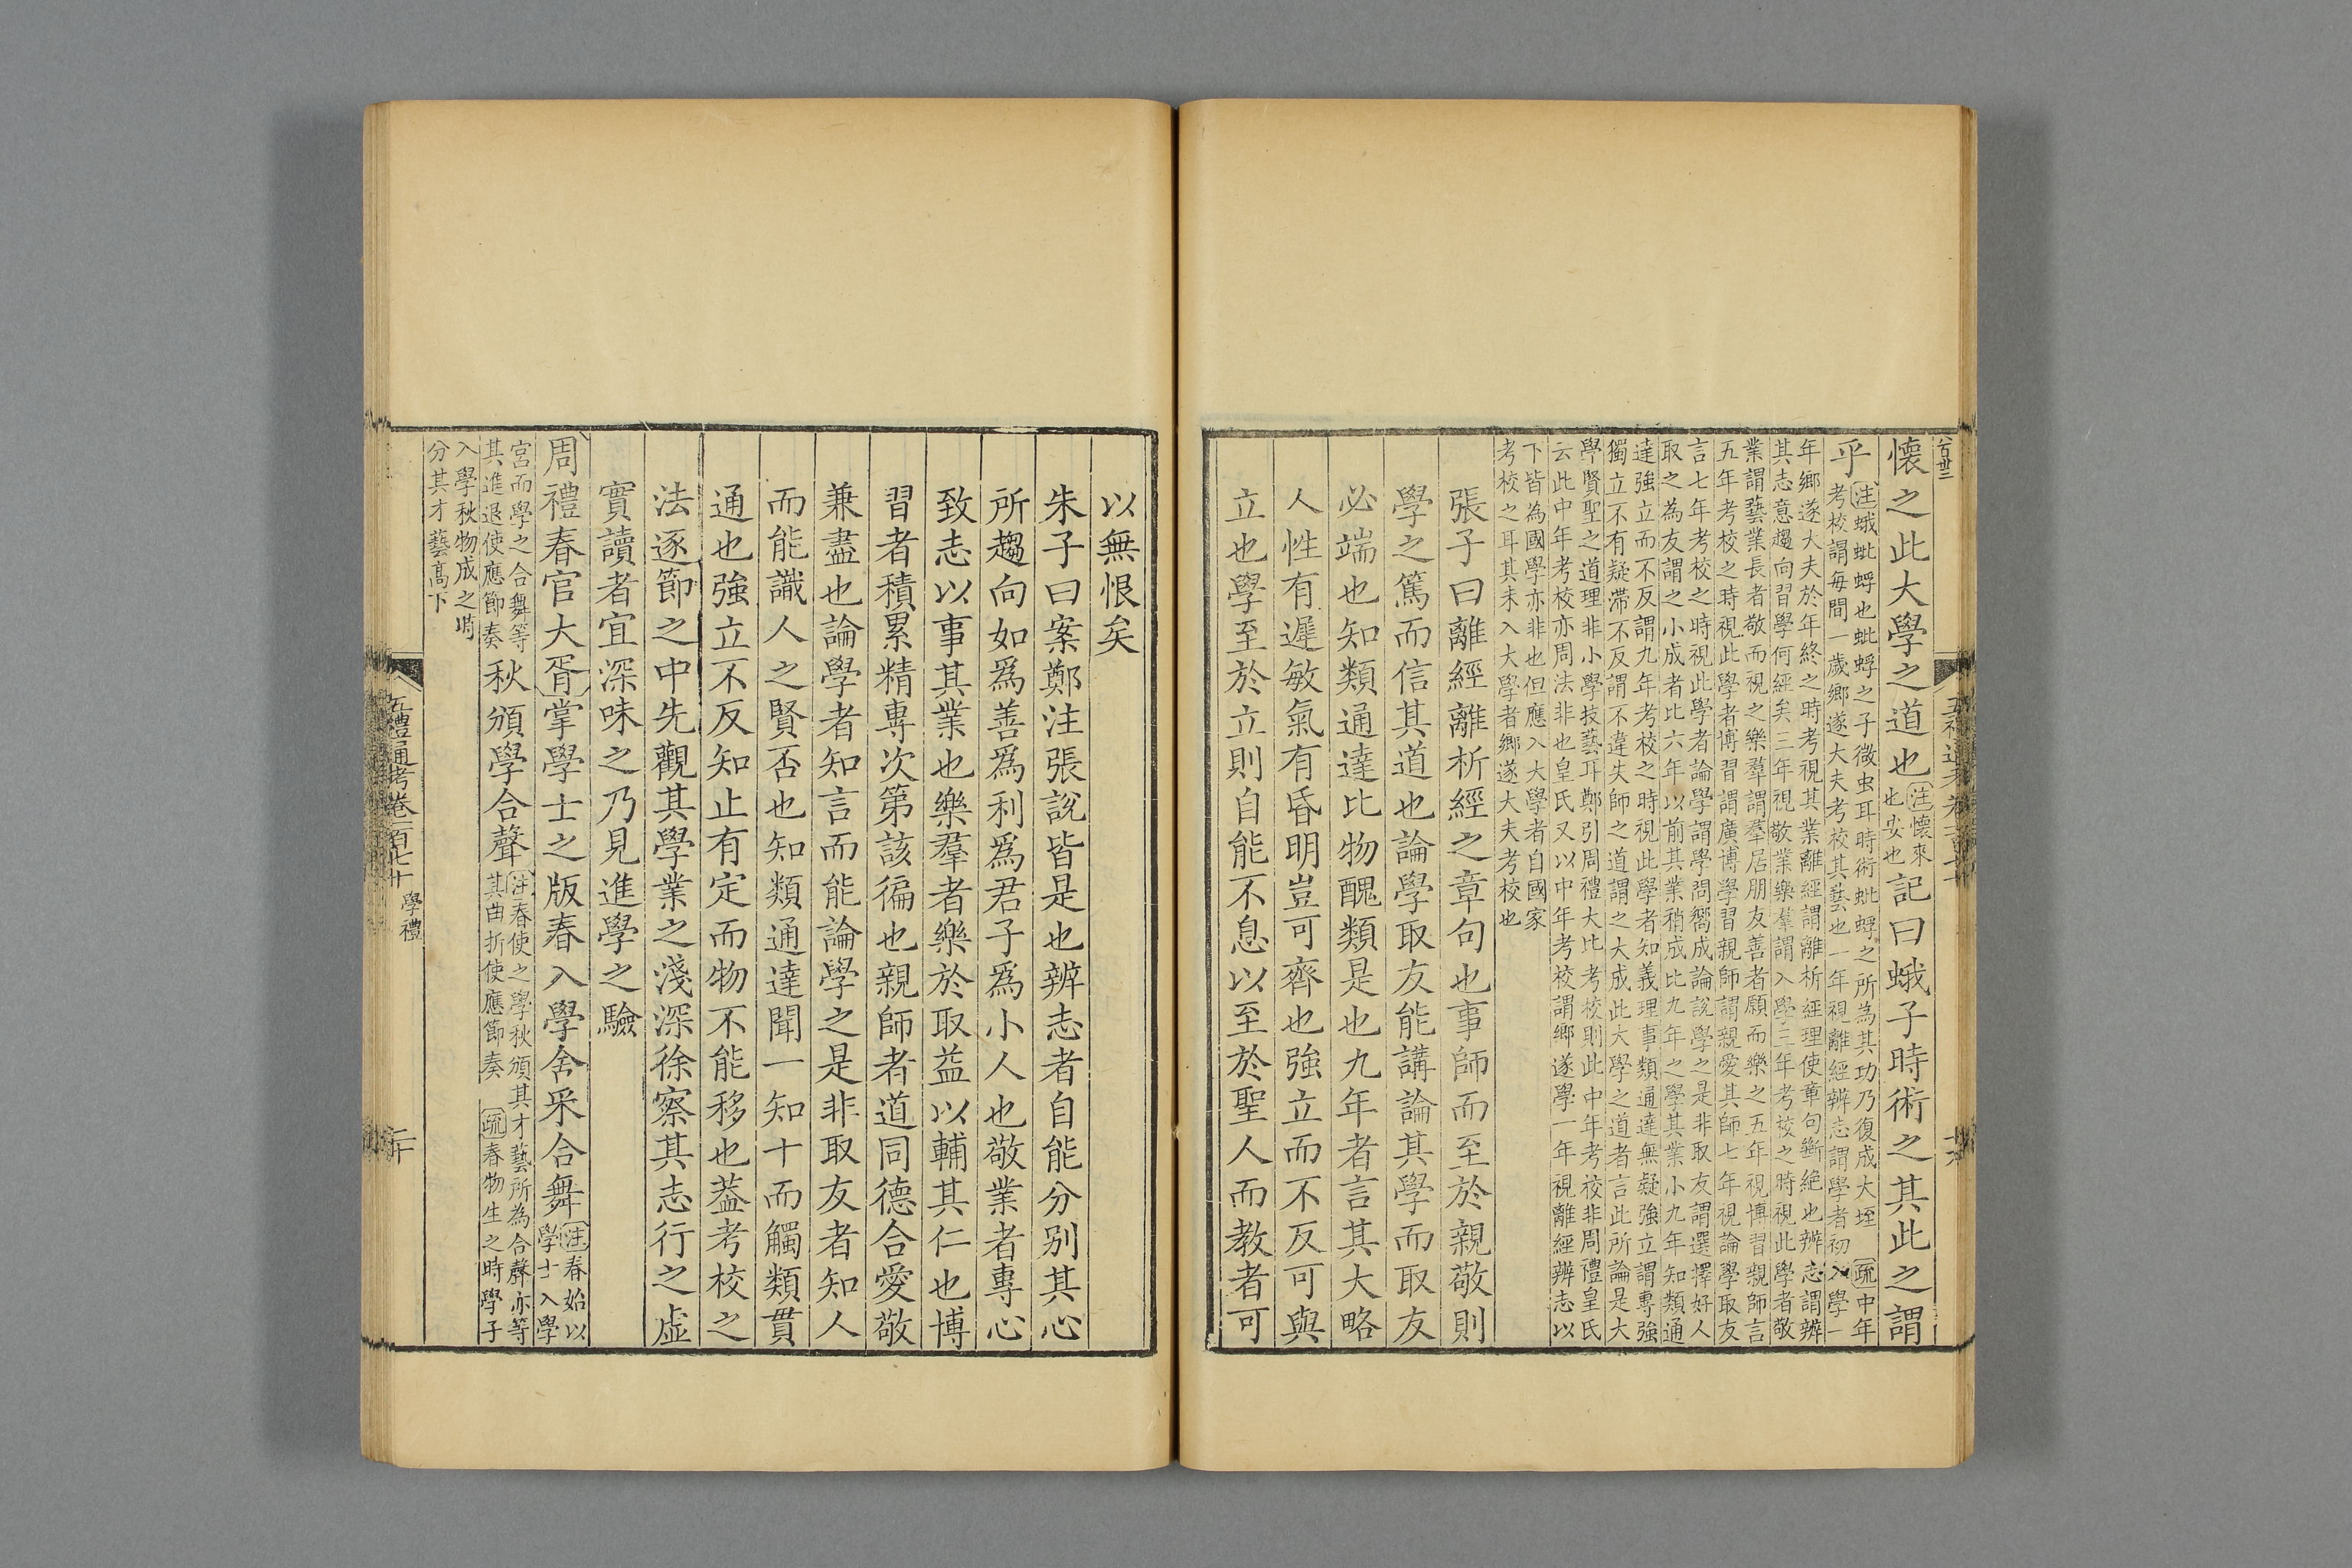 懷之此大學之道也注懷來也安也記曰蛾子時術之其此之謂
乎注蛾蚍蜉也蚍蜉之子微虫耳時術蚍蜉之所為其功乃復成大垤 疏中年
考校謂每間一歲鄉遂大夫考校其藝也一年視離經辨志謂學者初入學一
年鄉遂大夫於年終之時考視其業離經謂離析經理使章句斷絕也辨志謂辨
其志意趨向習學何經矣三年視敬業樂羣謂入學三年考校之時視此學者敬
業謂藝業長者敬而視之樂羣謂羣居朋友善者願而樂之五年視博習親師言
五年考校之時視此學者博習謂廣博學習親師謂親愛其師七年視論學取友
言七年考校之時視此學者論學謂學問嚮成論說學之是非取友謂選擇好人
取之為友謂之小成者比六年以前其業稍成比九年之學其業小九年知類通
達強立而不反謂九年考校之時視此學者知義理事類通達無疑強立謂專強
獨立不有疑滯不反謂不違失師之道謂之大成此大學之道者言此所論是大
學賢聖之道理非小學技藝耳鄭引周禮大比考校則此中年考校非周禮皇氏
云此中年考校亦周法非也皇氏又以中年考校謂鄉遂學一年視離經辨志以
下皆為國學亦非也但應入大學者自國家
考校之耳其未入大學者鄉遂大夫考校也
張子曰離經離析經之章句也事師而至於親敬則
學之篤而信其道也論學取友能講論其學而取友
必端也知類通達比物醜類是也九年者言其大略
人性有遲敏氣有昏明豈可齊也強立而不反可與
立也學至於立則自能不息以至於聖人而教者可
以無恨矣
朱子曰案鄭注張說皆是也辨志者自能分别其心
所趨向如爲善爲利爲君子爲小人也敬業者專心
致志以事其業也樂羣者樂於取益以輔其仁也博
習者積累精專次第該徧也親師者道同德合愛敬
兼盡也論學者知言而能論學之是非取友者知人
而能識人之賢否也知類通達聞一知十而觸類貫
通也強立不反知止有定而物不能移也葢考校之
法逐節之中先觀其學業之淺深徐察其志行之虛
實讀者宜深味之乃見進學之驗
周禮春官大胥掌學士之版春入學舍采合舞注春始以
學士入學
宮而學之合舞等
其進退使應節奏秋頒學合聲注春使之學秋頒其才藝所為合聲亦等
其曲折使應節奏 疏春物生之時學子
入學秋物成之時
分其才藝高下
五禮通考卷一百七十 學禮
二十